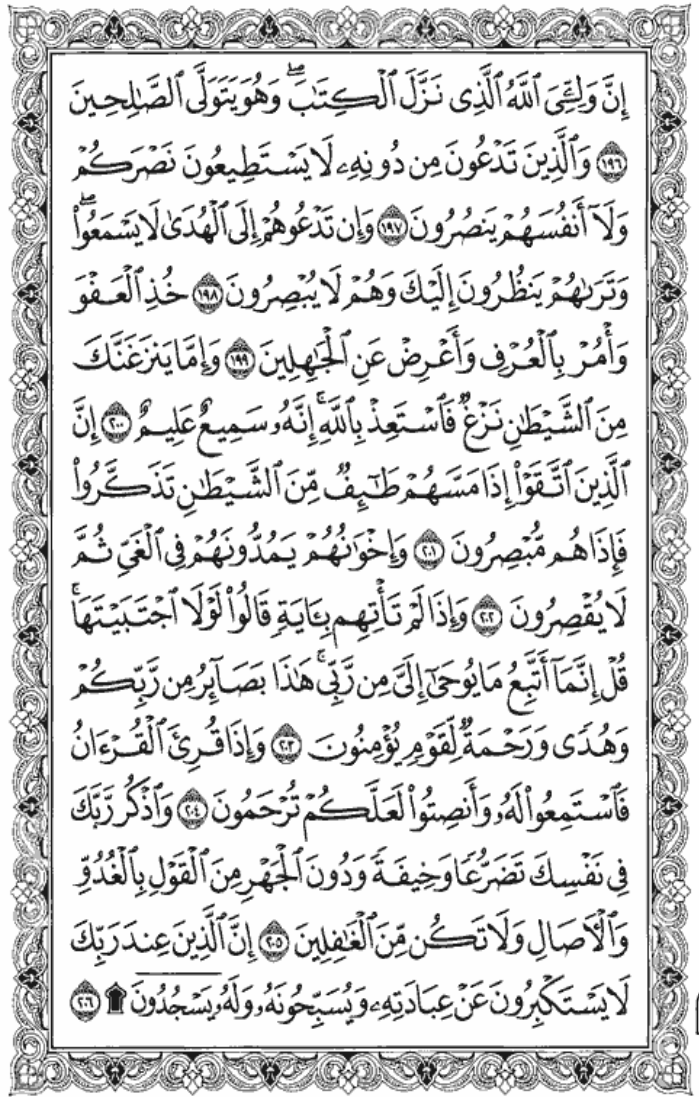 إِنَّ وَلِـِّۧيَ ٱللَّهُ ٱلَّذِى نَزَّلَ ٱلْكِتَٰبَۖ وَهُوَ يَتَوَلَّى ٱلصَّٰلِحِينَ
١٩٦ وَٱلَّذِينَ تَدْعُونَ مِن دُونِهِۦ لَا يَسْتَطِيعُونَ نَصْرَكُمْ
وَلَآ أَنفُسَهُمْ يَنصُرُونَ ١٩٧ وَإِن تَدْعُوهُمْ إِلَى ٱلْهُدَىٰ لَا يَسْمَعُوا۟ۖ
وَتَرَىٰهُمْ يَنظُرُونَ إِلَيْكَ وَهُمْ لَا يُبْصِرُونَ ١٩٨ خُذِ ٱلْعَفْوَ
وَأْمُرْ بِٱلْعُرْفِ وَأَعْرِضْ عَنِ ٱلْجَٰهِلِينَ ١٩٩ وَإِمَّا يَنزَغَنَّكَ
مِنَ ٱلشَّيْطَٰنِ نَزْغٌ فَٱسْتَعِذْ بِٱللَّهِۚ إِنَّهُۥ سَمِيعٌ عَلِيمٌ ٢٠٠ إِنَّ
ٱلَّذِينَ ٱتَّقَوْا۟ إِذَا مَسَّهُمْ طَٰٓئِفٌ مِّنَ ٱلشَّيْطَٰنِ تَذَكَّرُوا۟
فَإِذَا هُم مُّبْصِرُونَ ٢٠١ وَإِخْوَٰنُهُمْ يَمُدُّونَهُمْ فِى ٱلْغَىِّ ثُمَّ
لَا يُقْصِرُونَ ٢٠٢ وَإِذَا لَمْ تَأْتِهِم بِـَٔايَةٍ قَالُوا۟ لَوْلَا ٱجْتَبَيْتَهَاۚ
قُلْ إِنَّمَآ أَتَّبِعُ مَا يُوحَىٰٓ إِلَىَّ مِن رَّبِّىۚ هَٰذَا بَصَآئِرُ مِن رَّبِّكُمْ
وَهُدًى وَرَحْمَةٌ لِّقَوْمٍ يُؤْمِنُونَ ٢٠٣ وَإِذَا قُرِئَ ٱلْقُرْءَانُ
فَٱسْتَمِعُوا۟ لَهُۥ وَأَنصِتُوا۟ لَعَلَّكُمْ تُرْحَمُونَ ٢٠٤ وَٱذْكُر رَّبَّكَ
فِى نَفْسِكَ تَضَرُّعًا وَخِيفَةً وَدُونَ ٱلْجَهْرِ مِنَ ٱلْقَوْلِ بِٱلْغُدُوِّ
وَٱلْءَاصَالِ وَلَا تَكُن مِّنَ ٱلْغَٰفِلِينَ ٢٠٥ إِنَّ ٱلَّذِينَ عِندَ رَبِّكَ
لَا يَسْتَكْبِرُونَ عَنْ عِبَادَتِهِۦ وَيُسَبِّحُونَهُۥ وَلَهُۥ يَسْجُدُونَ ۩ ٢٠٦